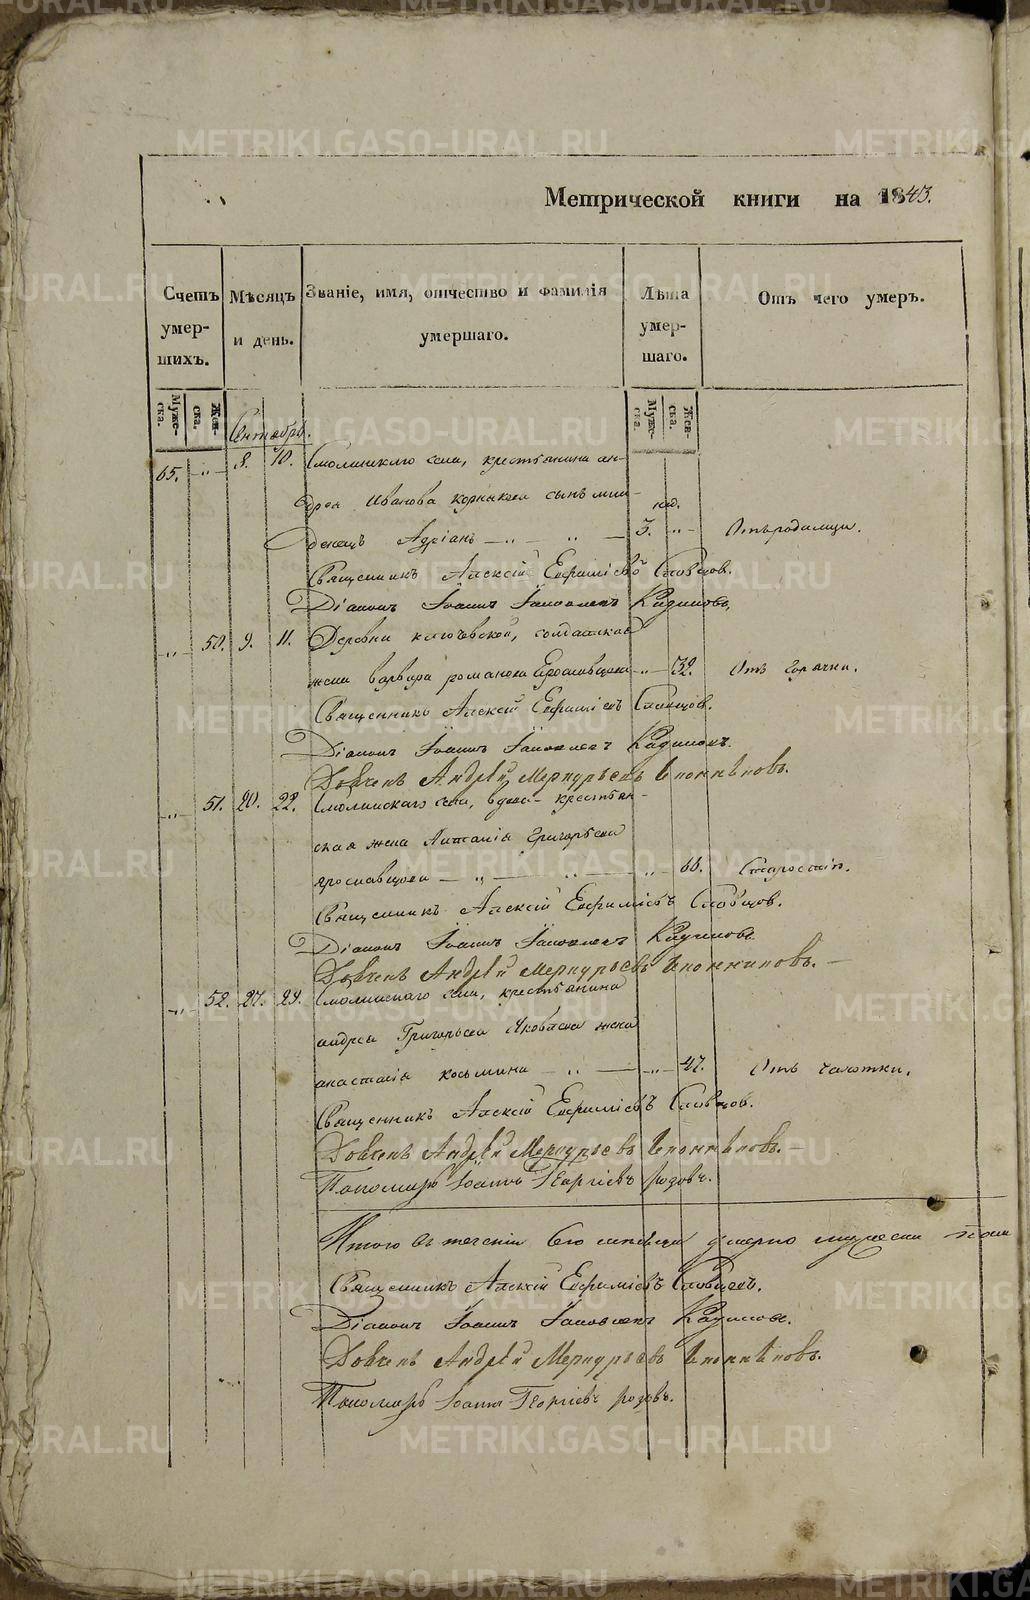 METRIKI.GASO-URAL.RU
Метрической книги на 1843.
Счетъ умер- шихъ.
Мѣсяцъ и день.
Званіе, имя, отчество и фамилія умершаго.
Лѣта умер- шаго.
Отъ чего умеръ.
Муже- ска.
Жен- ска.
Муже- ска.
Жен- ска.
Сентябрь.
65. „ 8. 10. Смолинскаго села, крестьянина ан-
дрея Иванова Корнякова сынъ мла- нед.
денецъ Адріанъ — „ — „ — 3. „ Отъ родимца.
Священникъ Алексій Евфиміевъ Словцов.
Діаконъ Іоаннъ Іаковлевъ Кадиковъ
„ 50. 9. 11. Деревни ключевской, солдатская
жена варвара романова Ярославцева „ 32. Отъ горячки.
Священникъ Алексій Евфиміевъ Словцов.
Діаконъ Іоаннъ Іаковлевъ Кадиковъ.
Дьячекъ Андрей Меркурьевъ
„ 51. 20. 22. Смолинскаго села, вдова крестьян-
ская жена Григорьева
ярославцова — „ — „ — „ 66. Старостію.
Священникъ Алексій Евфиміевъ Словцов.
Діаконъ Іоаннъ Іаковлевъ Кадиковъ
Дьячекъ Андрей Меркурьевъ
„ 52. 27. 29. Смолинскаго села, крестьянина
андрея Григорьева Яковлева жена
анастасія косьмина — „ — „ 47. Отъ чахотки.
Священникъ Алексій Евфиміевъ Словцов.
Дьячекъ Андрей Меркурьевъ
Пономарь Іоаннъ Георгіевъ
Итого въ теченіи сего месяца умерло мужеска пола
Священникъ Алексій Евфиміевъ Словцовъ.
Діаконъ Іоаннъ Іаковлевъ Кадиковъ.
Дьячекъ Андрей Меркурьевъ
Пономарь Іоаннъ Георгіевъ